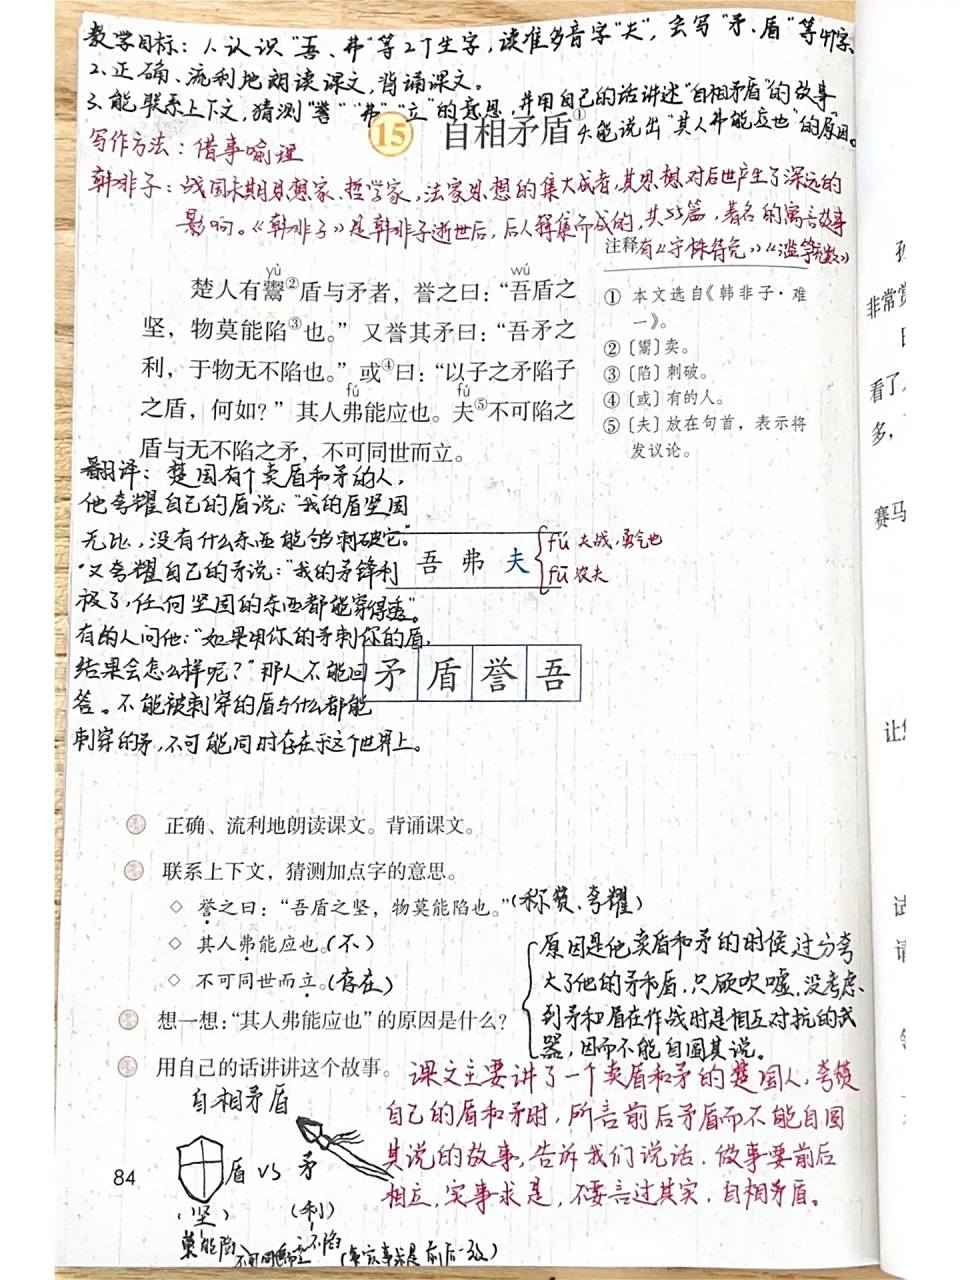 教学目标：1.认识“吾、弗”等2个生字，读准多音字“夫”，会写“矛、盾”等4个字
2.正确、流利地朗读课文，背诵课文。
3.能联系上下文，猜测“誉”“弗”“立”的意思，并用自己的话讲述“自相矛盾”的故事
4.能说出“其人弗能应也”的原因。
15 自相矛盾①
写作方法：借事喻理
韩非子：战国末期思想家、哲学家，法家思想的集大成者，其思想对后世产生了深远的
影响。《韩非子》是韩非子逝世后，后人辑集而成的，共55篇，著名的寓言故事
有《守株待兔》《滥竽充数》
注释
yù wú
楚人有鬻②盾与矛者，誉之曰：“吾盾之
坚，物莫能陷③也。”又誉其矛曰：“吾矛之
利，于物无不陷也。”或④曰：“以子之矛陷子
fú fú
之盾，何如？”其人弗能应也。夫⑤不可陷之
盾与无不陷之矛，不可同世而立。
① 本文选自《韩非子·难
一》。
② 〔鬻〕卖。
③ 〔陷〕刺破。
④ 〔或〕有的人。
⑤ 〔夫〕放在句首，表示将
发议论。
翻译：楚国有个卖盾和矛的人，
他夸耀自己的盾说：“我的盾坚固
无比，没有什么东西能够刺破它。”
又夸耀自己的矛说：“我的矛锋利
极了，任何坚固的东西都能穿得透”。
有的人问他：“如果用你的矛刺你的盾，
结果会怎么样呢？”那人不能回
答。不能被刺穿的盾与什么都能
刺穿的矛，不可能同时存在于这个世界上。
吾 弗 夫
fú 夫战，勇气也
fū 农夫
矛 盾 誉 吾
正确、流利地朗读课文。背诵课文。
联系上下文，猜测加点字的意思。
◇ 誉之曰：“吾盾之坚，物莫能陷也。”（称赞、夸耀）
◇ 其人弗能应也。（不）
◇ 不可同世而立。（存在）
想一想：“其人弗能应也”的原因是什么？
原因是他卖盾和矛的时候，过分夸
大了他的矛和盾，只顾吹嘘，没考虑
到矛和盾在作战时是相互对抗的武
器，因而不能自圆其说。
用自己的话讲讲这个故事。
课文主要讲了一个卖盾和矛的楚国人，夸赞
自己的盾和矛时，所言前后矛盾而不能自圆
其说的故事，告诉我们说话、做事要前后
相立，实事求是，不要言过其实，自相矛盾。
自相矛盾
盾 vs 矛
（坚） （利）
莫能陷 无不陷
不可同世而立
84
孙
非常赏
看了
多，
赛马
让您
试
请